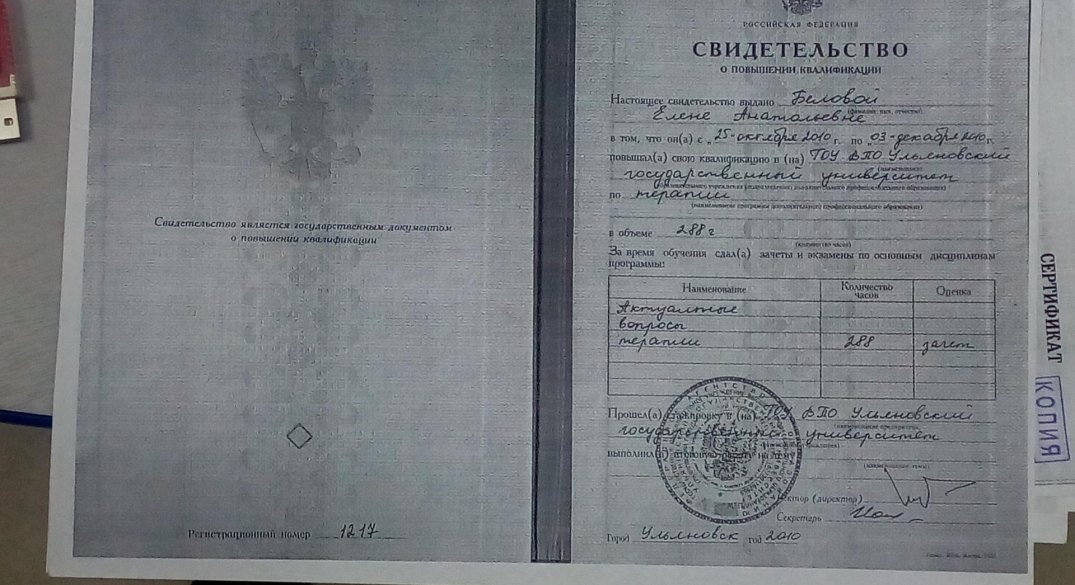 Свидетельство является государственным документом
о повышении квалификации
Регистрационный номер 1217
РОССИЙСКАЯ ФЕДЕРАЦИЯ
СВИДЕТЕЛЬСТВО
О ПОВЫШЕНИИ КВАЛИФИКАЦИИ
Настоящее свидетельство выдано Беловой
(фамилия, имя, отчество)
Елене Анатольевне
в том, что он(а) с „25“ октября 2010 г. по „03“ декабря 2010 г.
повышал(а) свою квалификацию в (на) ГОУ ВПО Ульяновский
(наименование
государственный университет
образовательного учреждения (подразделения) дополнительного профессионального образования)
по терапии
(наименование программы дополнительного профессионального образования)
в объеме 288 г
(количество часов)
За время обучения сдал(а) зачеты и экзамены по основным дисциплинам
программы:
Наименование Количество часов Оценка
Актуальные
вопросы
терапии 288 зачет
Прошел(а) стажировку в (на) ГОУ ВПО Ульяновский
(наименование предприятия,
государственный университет
выполнил(а) итоговую работу на тему
(наименование темы)
Ректор (директор)
Секретарь
Город Ульяновск год 2010
СЕРТИФИКАТ
КОПИЯ